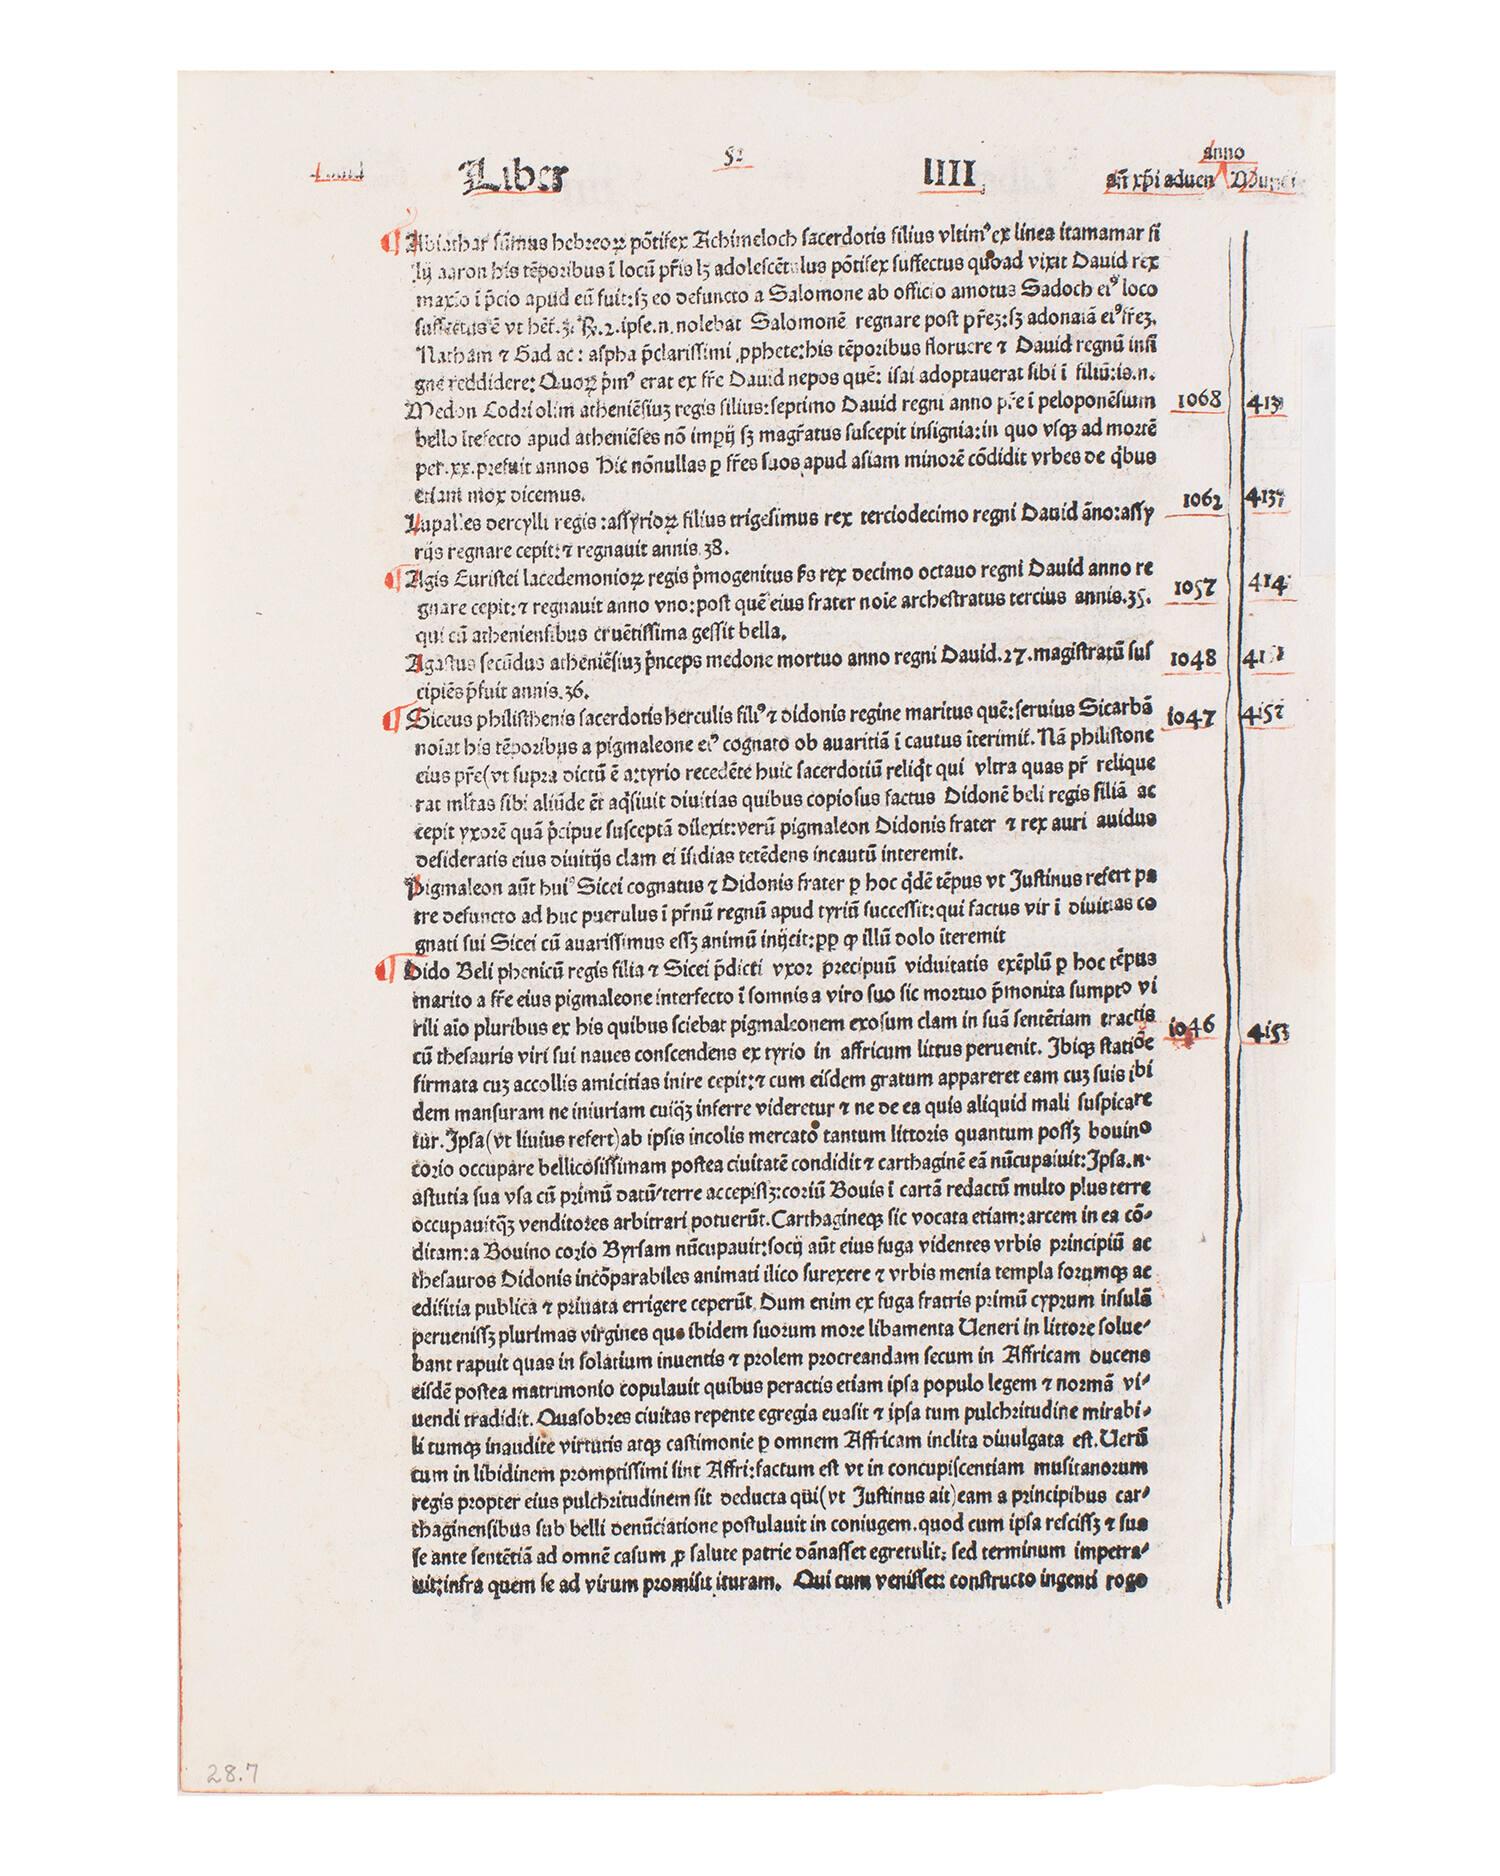 Liber 52 IIII
anno
añ xp̄i aduen Mundi
Abiathar sūmus hebreoꝝ pōtifex Achimeloch sacerdotis filius vltimꝰ ex linea itamamar fi
lij aaron his tēporibus ī locū pr̄is lꝫ adolescētulus pōtifex suffectus quoad vixit Dauid rex
maxīo ī p̄cio apud eū fuit: sꝫ eo defuncto a Salomone ab officio amotus Sadoch eiꝰ loco
suffectus ē vt hēt̄ .3. R̄.2. ipse .n. nolebat Salomonē regnare post pr̄eꝫ: sꝫ adonaiā eiꝰ fr̄eꝫ.
Natham ⁊ Gad ac: aspha p̄clarissimi ꝓphete: his tēporibus floruere ⁊ Dauid regnū insi
gne reddidere: Quoꝝ p̄mꝰ erat ex fr̄e Dauid nepos quē: isai adoptauerat sibi ī filiū: is .n.
Medon Codri olim atheniēsiuꝫ regis filius: septimo Dauid regni anno pr̄e ī peloponēsium 1068 413
bello ītefecto apud atheniēses nō imp̱ij sꝫ magr̄atus suscepit insignia: in quo vsqꝫ ad mortē
per .xx. prefuit annos Hic nōnullas ꝑ fr̄es suos apud asiam minorē cōdidit vrbes de q̇bus
etiam mox dicemus.
Lupales dercylli regis: assyrioꝝ filius trigesimus rex terciodecimo regni Dauid āno: assy 1062 4137
rijs regnare cepit: ⁊ regnauit annis 38.
Agis Euristei lacedemonioꝝ regis p̄mogenitus s̄s rex decimo octauo regni Dauid anno re 1057 414
gnare cepit: ⁊ regnauit anno vno: post quē eius frater noīe archestratus tercius annis .35.
qui cū atheniensibus cruētissima gessit bella.
Agastus secūdus atheniēsiuꝫ p̄nceps medone mortuo anno regni Dauid .27. magistratū sus 1048 4151
cipiēs p̄fuit annis .36.
Siceus philisthenis sacerdotis herculis filiꝰ ⁊ didonis regine maritus quē: seruius Sicarbā 1047 4152
noīat his tēporibus a pigmaleone eiꝰ cognato ob auaritiā ī cautus īterimit̄. Nā philistone
eius pr̄e (vt supra dictū ē a: tyrio recedēte huic sacerdotiū reliq̄t qui vltra quas pr̄ relique
rat ml̄tas sibi aliūde ēt aq̇siuit diuitias quibus copiosus factus Didonē beli regis filiā ac
cepit vxorē quā p̄cipue susceptā dilexit: verū pigmaleon Didonis frater ⁊ rex auri auidus
desideratis eius diuitijs clam ei īsidias tetēdens incautū interemit.
Pigmaleon aūt huiꝰ Sicei cognatus ⁊ Didonis frater ꝑ hoc q̇dē tēpus vt Justinus refert pa
tre defuncto ad huc puerulus ī pr̄nū regnū apud tyriū successit: qui factus vir ī diuitias co
gnati sui Sicei cū auarissimus essꝫ animū inijcit: ꝓp̱ qꝫ illū dolo īteremit
Dido Beli phenicū regis filia ⁊ Sicei p̄dicti vxor precipuū viduitatis exēplū ꝑ hoc tēpus
marito a fr̄e eius pigmaleone interfecto ī somnis a viro suo sic mortuo p̄monita sumpto vi
rili aīo pluribus ex his quibus sciebat pigmaleonem exosum clam in suā sentētiam tractis 1046 4153
cū thesauris viri sui naues conscendens ex tyrio in affricum littus peruenit. Ibiqꝫ statiōe
firmata cuꝫ accollis amicitias inire cepit: ⁊ cum eisdem gratum appareret eam cuꝫ suis ibi
dem mansuram ne iniuriam cuiq̄ꝫ inferre videretur ⁊ ne de ea quis aliquid mali suspicare
tur. Ipsa (vt liuius refert) ab ipsis incolis mercato tantum littoris quantum possꝫ bouino
corio occupare bellicosissimam postea ciuitatē condidit ⁊ carthaginē eā nūcupauit: Ipsa .n.
astutia sua vsa cū primū datū terre accepisꝫ: coriū Bouis ī cartā redactū multo plus terre
occupauit q̄ꝫ venditores arbitrari potuerūt. Carthagineqꝫ sic vocata etiam: arcem in ea cō-
ditam: a Bouino corio Byrsam nūcupauit: socij aūt eius fuga videntes vrbis principiū ac
thesauros Didonis incōparabiles animati ilico surexere ⁊ vrbis menia templa forumqꝫ ac
edifitia publica ⁊ priuata errigere ceperūt. Dum enim ex fuga fratris primū cyprum insulā
peruenissꝫ plurimas virgines que ibidem suorum more libamenta Ueneri in littore solue-
bant rapuit quas in solatium inuentis ⁊ prolem procreandam secum in Affricam ducens
eisdē postea matrimonio copulauit quibus peractis etiam ipsa populo legem ⁊ normā vi-
uendi tradidit. Quasobres ciuitas repente egregia euasit ⁊ ipsa tum pulchritudine mirabi-
li tumqꝫ inaudite virtutis atqꝫ castimonie ꝑ omnem Affricam inclita diuulgata est. Uerū
cum in libidinem promptissimi sint Affri: factum est vt in concupiscentiam musitanorum
regis propter eius pulchritudinem sit deducta qūi (vt Justinus ait) eam a principibus car-
thaginensibus sub belli denūciatione postulauit in coniugem. quod cum ipsa rescissꝫ ⁊ sua
se ante sentētiā ad omnē casum ꝓ salute patrie dānasset egretulit: sed terminum impetra-
uit: infra quem se ad virum promisit ituram. Qui cum venisset: constructo ingenti rogo
28.7